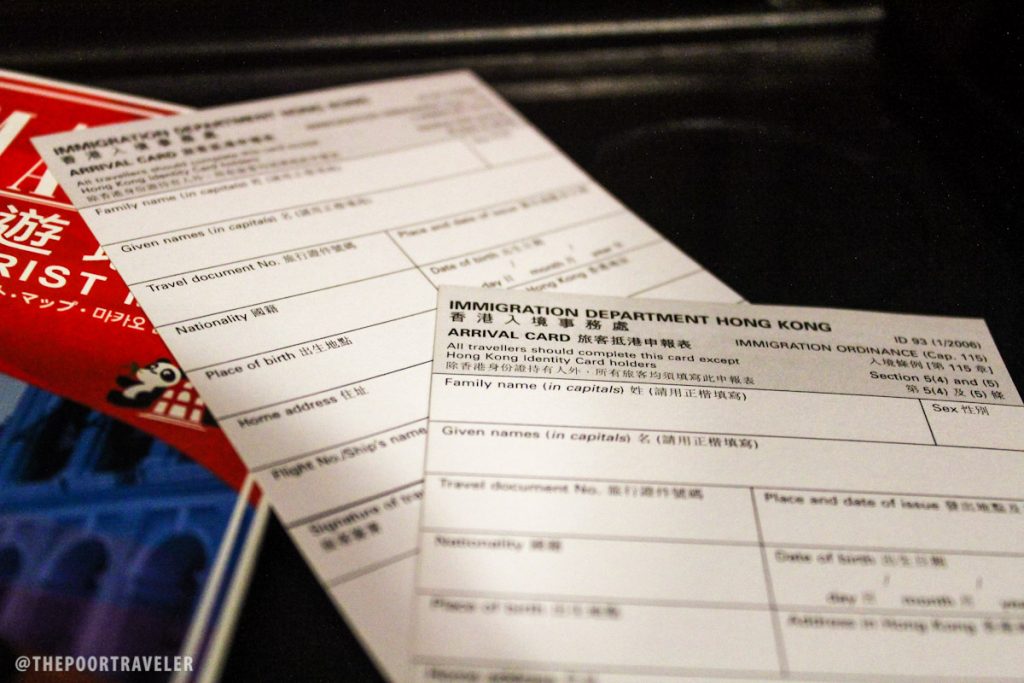 遊
RIST M
ト・マップ・마카오
IMMIGRATION DEPARTMENT HONG KONG
香港入境事務處
ARRIVAL CARD 旅客抵港申報表
All travellers should complete
Hong Kong Identity Card holders
Family name (in capitals) 姓 (請用正楷填寫)
Given names (in capitals) 名 (請用正楷填寫)
Travel document No. 旅行證件號碼
Place and date of issue
Nationality 國籍
Date of birth 出生日期
/ /
day 日 month 月 year 年
Place of birth 出生地點
Home address 住址
Flight No./Ship's name
Signature of
IMMIGRATION DEPARTMENT HONG KONG
香港入境事務處
ID 93 (1/2006)
ARRIVAL CARD 旅客抵港申報表
IMMIGRATION ORDINANCE (Cap. 115)
All travellers should complete this card except
入境條例 [第 115 章]
Hong Kong Identity Card holders
Section 5(4) and (5)
除香港身份證持有人外，所有旅客均須填寫此申報表
第 5(4) 及 (5) 條
Family name (in capitals) 姓 (請用正楷填寫)
Sex 性別
Given names (in capitals) 名 (請用正楷填寫)
Travel document No. 旅行證件號碼
Place and date of issue 發出地點及
Nationality 國籍
Date of birth 出生日期
/ /
day 日 month 月 year
Place of birth 出生地點
Address in Hong Kong
Home address
@THEPOORTRAVELER